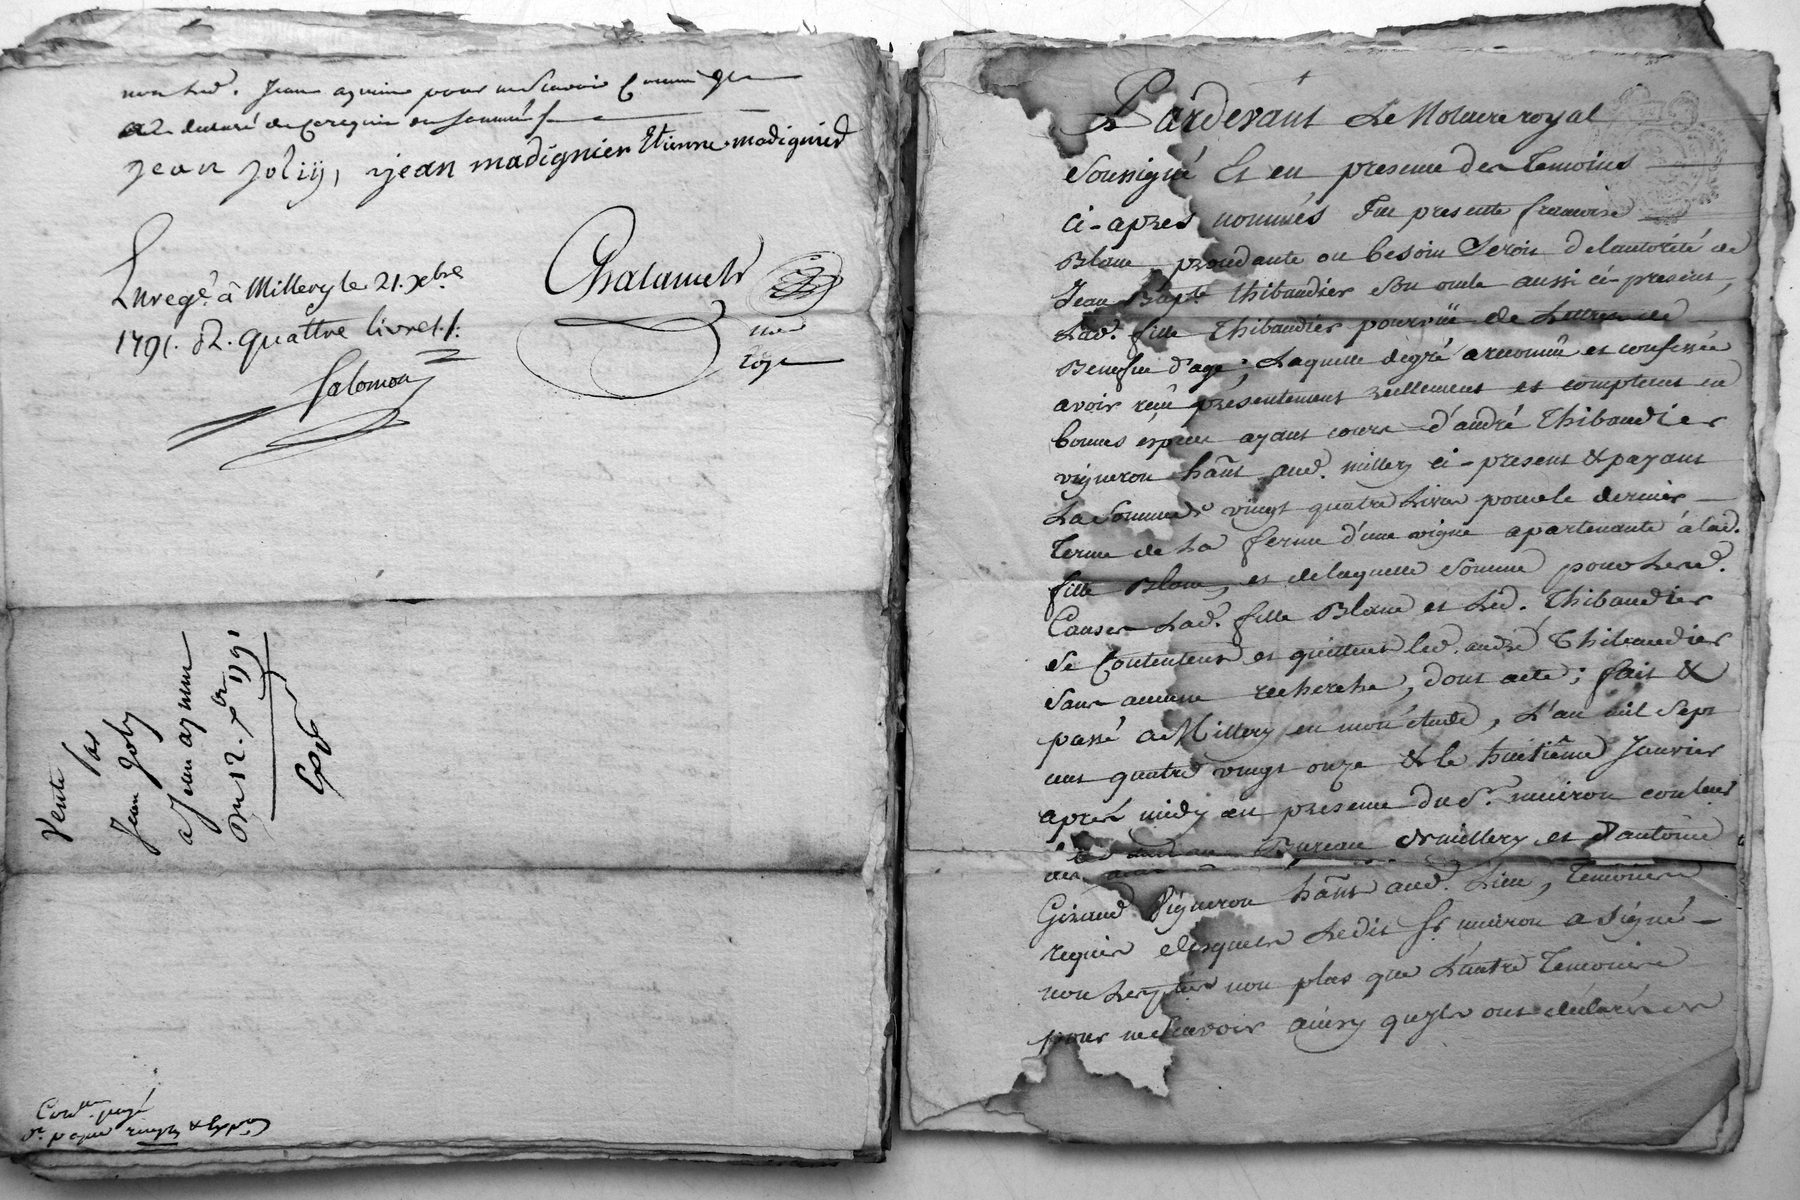 non led. Jean aymin pour ne scavoir comme il
a declaré de ce requis & sommé
jean joliÿ, jean madignier Etienne madignier
Enregé. à Millery le 21. xbre
1791. R. quattre livres
Salomon
Chalamel
nre
roÿal
Vente
par
Jean Joly
a Jean aymin
Du 12. xbre 1791
Conlle. payé
Pardevant Le Notaire royal
Soussigné Et en presence des Temoins
ci-apres nommés Fut presente francoise
Blanc, procedante ou besoin Seroit de lautorité de
Jean Bapte. thibaudier son oncle aussi ci-present,
Lad. fille thibaudier pourvüe de Lettres de
Benefice d'age; Laquelle de gré a reconnû et confessée
avoir reçû présentement reellement et comptent en
bonnes espèces ayant cours d'andré Thibaudier
vigneron hant. aud. millery ci-present & payant
La Somme de vingt quatre Livres pour le dernier
terme de La ferme d'une vigne apartenante à lad.
fille Blanc, et de laquelle Somme pour Lesd.
Causes Lad. fille Blanc et Led. Thibaudier
se Contentent et quittent led. andré Thibaudier
sans aucune recherche, dont acte; fait &
passé a Millery en mon étude, L'an mil Sept
cent quatre vingt onze & le huitième Janvier
après midy en presence du Sr. muiron
Bureau de millery et d'antoine
Giraud Vigneron hant aud. Lieu, Temoins
requis desquels Ledit Sr. muiron a signé
non Les parties non plus que L'autre Temoins
pour ne scavoir ainsy qu'yls ont déclarés en